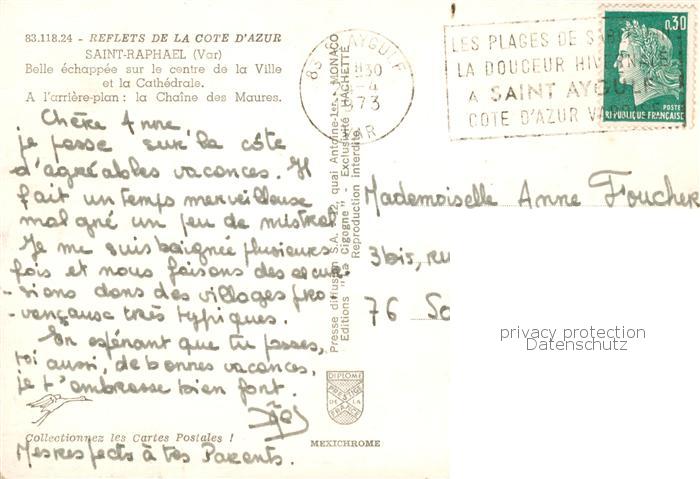 83.118.24 - REFLETS DE LA COTE D'AZUR
SAINT-RAPHAEL (Var)
Belle échappée sur le centre de la Ville
et la Cathédrale.
A l'arrière-plan : la Chaîne des Maures.
Chère Anne
je passe sur la côte
d'agréables vacances. Il
fait un temps merveilleux
malgré un peu de mistral
Je me suis baignée plusieurs
fois et nous faisons des excur
-sions dans des villages pro
-vençaux très typiques.
En espérant que tu passes,
toi aussi, de bonnes vacances,
je t'embrasse bien fort.
Collectionnez les Cartes Postales !
Mes respects à tes Parents.
Presse diffusion S.A. - 12, quai Antoine-1er - MONACO
Editions "La Cigogne" - Exclusivité HACHETTE
Reproduction interdite
DIPLOME
PRESTIGE
DE LA
FRANCE
MEXICHROME
83 ST AYGULF
30
-4
1973
VAR
LES PLAGES DE SABLE
LA DOUCEUR HIVERNALE
A SAINT AYGULF
COTE D'AZUR VAROISE
0,30
POSTES
REPUBLIQUE FRANÇAISE
Mademoiselle Anne Foucher
3bis, ru
76 So
privacy protection
Datenschutz